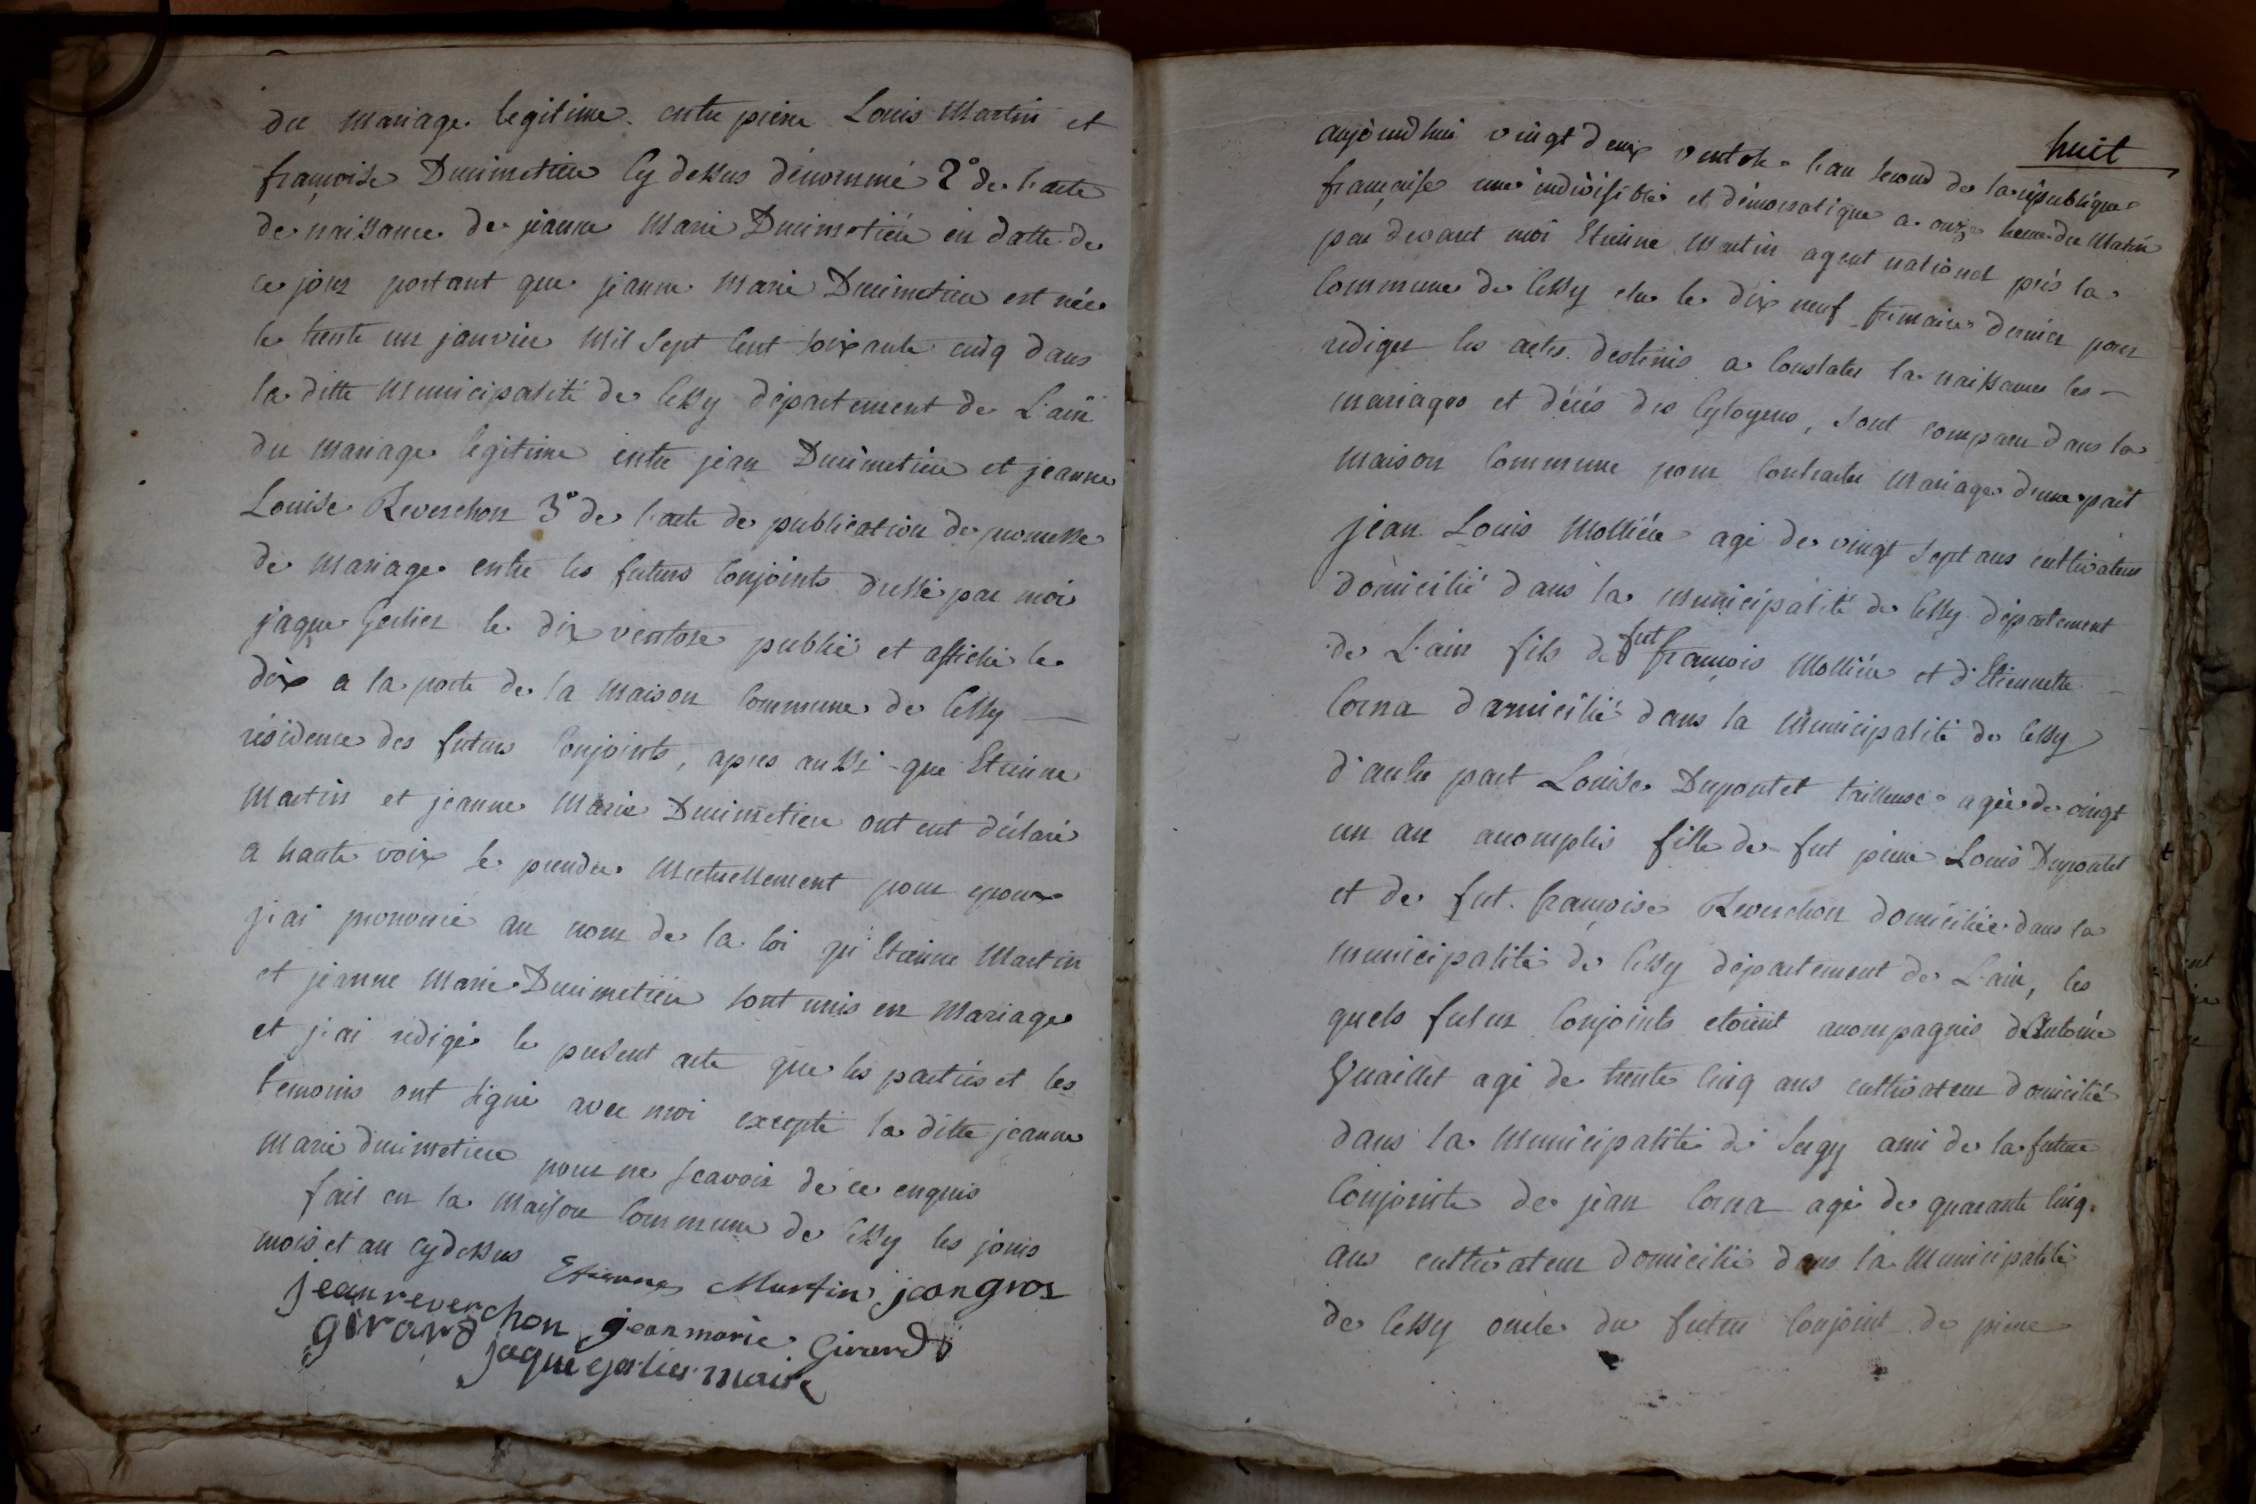 du mariage legitime entre pierre Louis Martin et
françoise Dumimetiere Cy dessus dénommé 2° de l'acte
de naissance de jeanne Marie Dumimetiere en datte de
ce jour portant que jeanne Marie Dumimetiere est née
le trente un janvier Mil Sept Cent soixante cinq dans
la ditte Municipalité de Cessy département de L'ain
du mariage legitime entre jean Dumimetiere et jeanne
Louise Reverchon 3° de l'acte de publication de promesse
de mariage entre les futurs Conjoints dressé par moi
jaque Gerlier le dix ventose publié et affiché le
dix a la porte de la Maison Commune de Cessy
résidence des futurs Conjoints, apres aussi que Etienne
Martin et jeanne Marie Dumimetiere ont eut déclaré
a haute voix se prendre Mutuellement pour epoux
j'ai prononcé au nom de la loi qu'Etienne Martin
et jeanne Marie Dumimetiere sont unis en Mariage
et j'ai redigé le present acte que les parties et les
temoins ont signé avec moi excepté la ditte jeanne
Marie dumimetiere pour ne scavoir de ce enquis
fait en la Maison Commune de Cessy les jours
mois et an cydessus Etienne Martin jean gros
jean reverchon jean marie Girard
girard jaque gerlier maire
huit
aujourdhui vingt deux ventose l'an second de la république
française une indivisible et démocratique a onze heure du Matin
par devant moi Etienne Martin agent national près la
Commune de Cessy elu le dix neuf frimaire dernier pour
rediger les actes destinés a Constater la naissance les
mariages et décés des Cytoyens, sont comparu dans la
Maison Commune pour Contracter Mariage d'une part
jean Louis Molliée agé de vingt sept ans cultivateur
domicilié dans la Municipalité de Cessy département
de L'ain fils de fut françois Molliée et d'Etiennette
Corna domicilié dans la Municipalité de Cessy
d'autre part Louise Dupontet tailleuse agée de vingt
un an accomplis fille de fut pierre Louis Dupontet
et de fut françoise Reverchon domiciliée dans la
Municipalité de Cessy département de L'ain, les
quels futur Conjoints etoient accompagnés d'Antoine
Quaillet agé de trente Cinq ans cultivateur domicilié
dans la Municipalité de Sergy ami de la future
Conjointe de jean Corna agé de quarante Cinq
ans cultivateur domicilié dans la Municipalité
de Cessy oncle du futur Conjoint de pierre